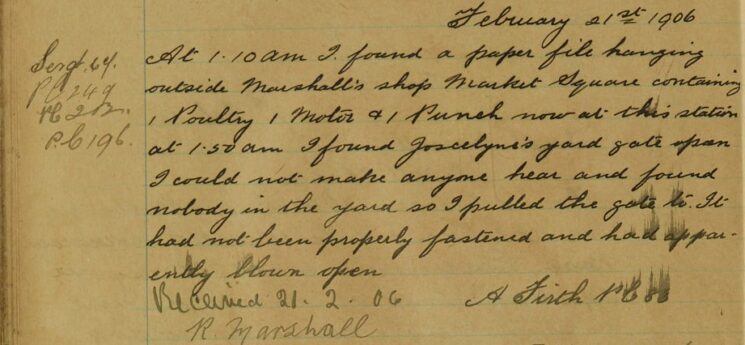 February 21st 1906
Sergt. 64.
PC 249
PC 202.
P.C 196.
At 1.10 am I found a paper file hanging
outside Marshall's shop Market Square containing
1 Poultry 1 Motor & 1 Punch now at this station
at 1.50 am I found Joscelyne's yard gate open
I could not make anyone hear and found
nobody in the yard so I pulled the gate to. It
had not been properly fastened and had appar-
ently blown open
A Firth PC
Received 21. 2. 06
R. Marshall